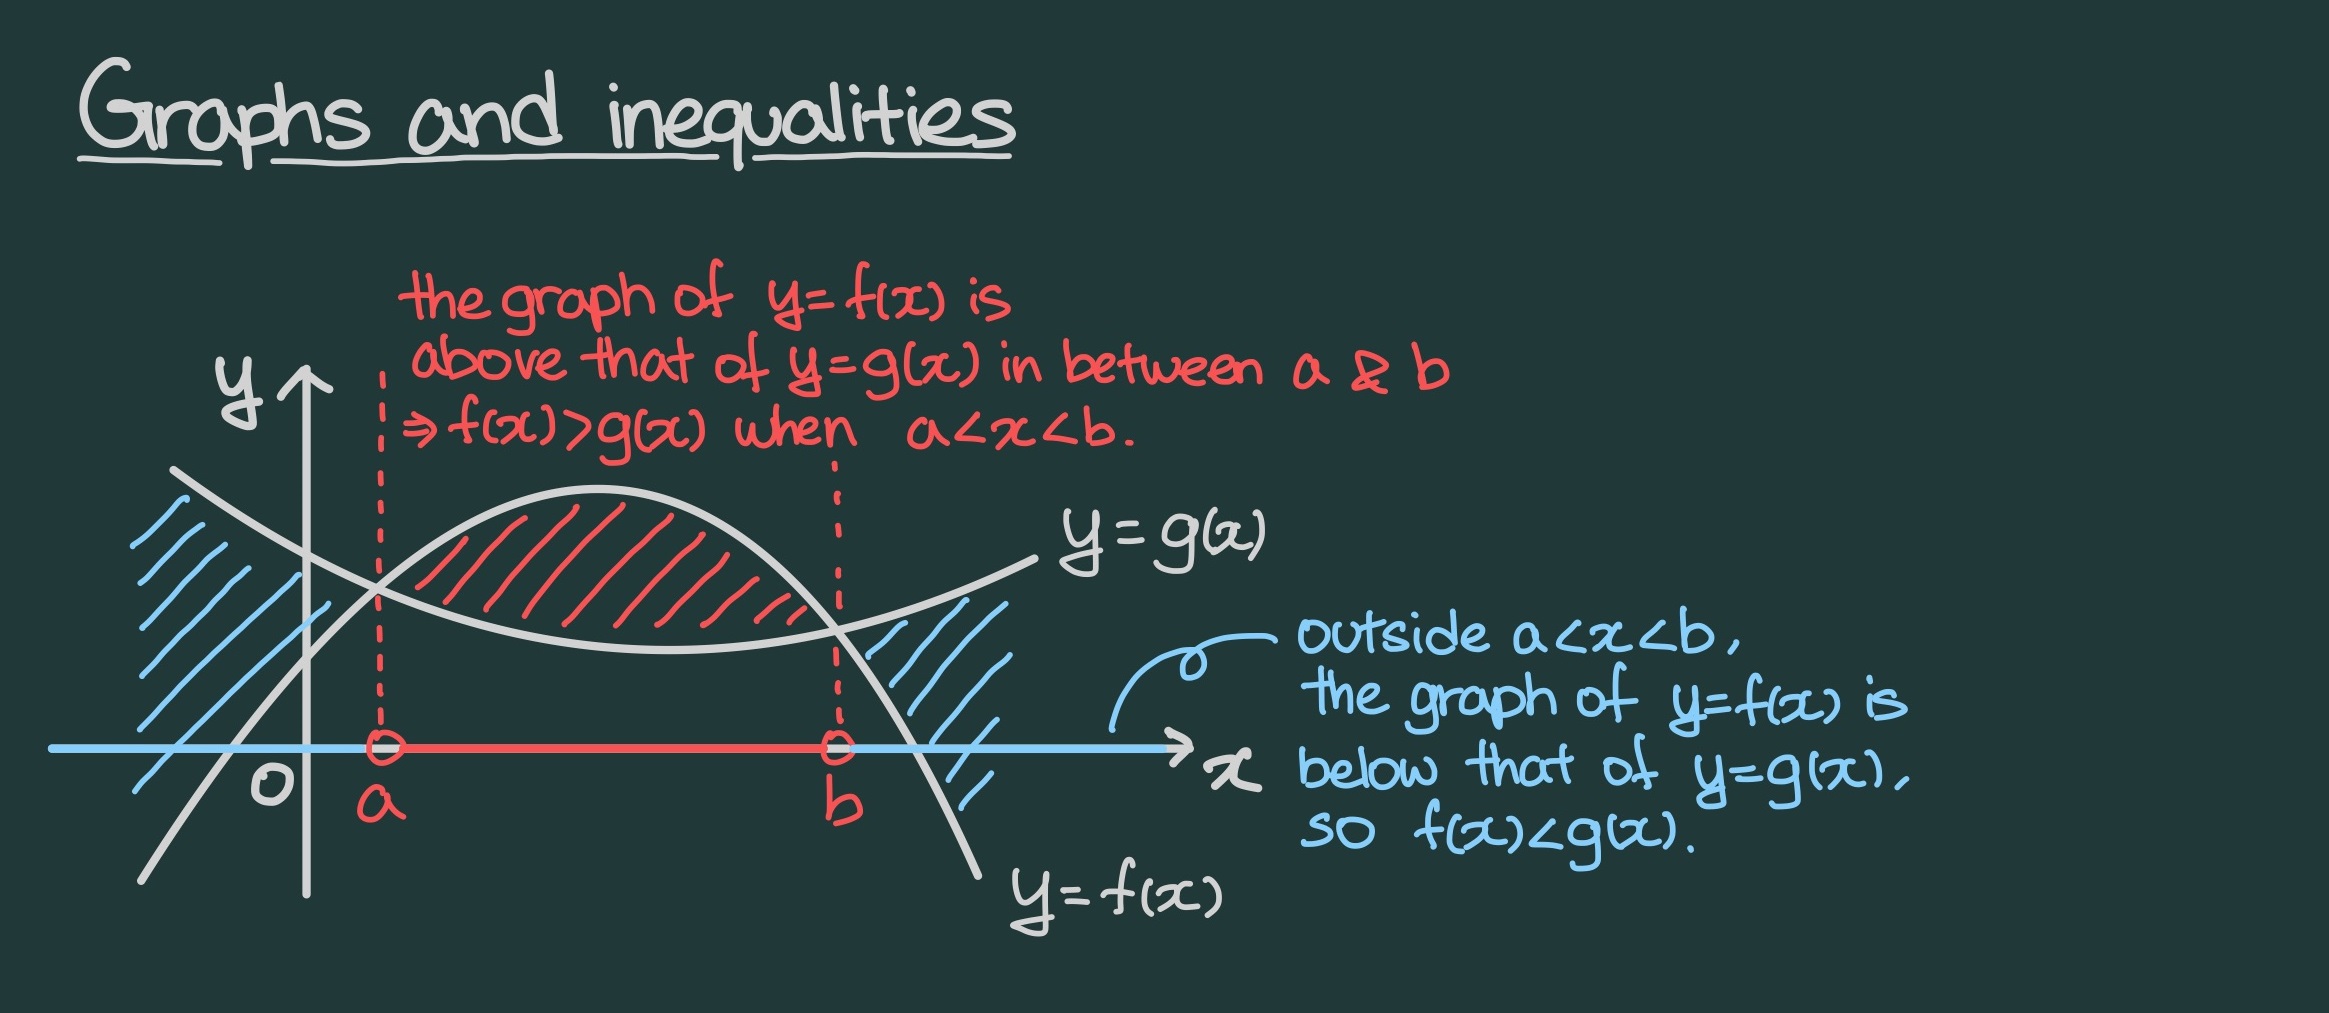 Graphs and inequalities
the graph of y=f(x) is
above that of y=g(x) in between a & b
⇒ f(x)>g(x) when a<x<b.
y
y=g(x)
outside a<x<b,
the graph of y=f(x) is
below that of y=g(x),
so f(x)<g(x).
x
O
a
b
y=f(x)